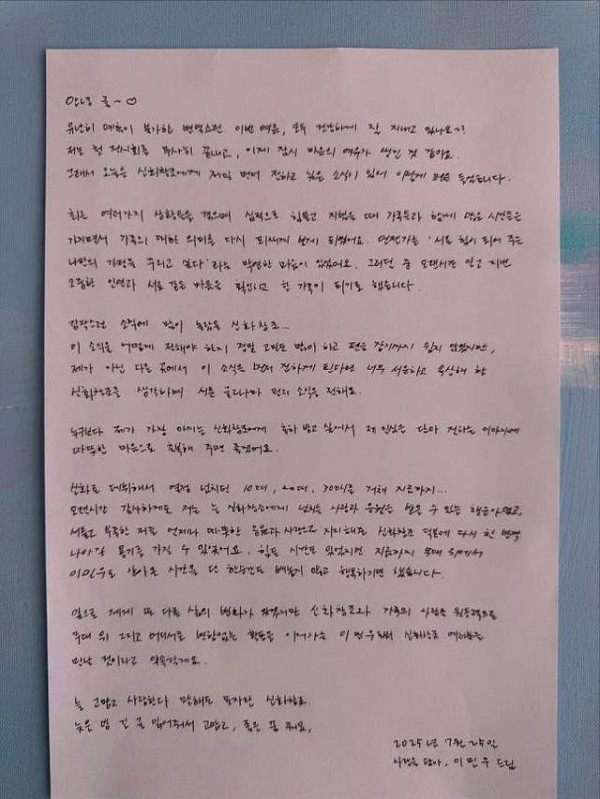 안녕 귤~♡
유난히 더움이 무가한 변덕스런 이번 여름, 모두 건강하게 잘 지내고 있나요?
저는 첫 전시회를 무사히 끝내고, 이제 잠시 마음의 여유가 생긴 것 같아요.
그래서 오늘은 신화창조에게 제일 먼저 전하고 싶은 소식이 있어 이렇게 펜을 들었습니다.
최근 여러가지 상황들을 겪으며 심적으로 힘들고 지쳤을 때 가족들과 함께 많은 시간을
가지면서 가족의 대한 의미를 다시 되새겨 보게 되었어요. 언젠가는 '서로 힘이 되어 주는
나만의 가정을 꾸리고 싶다' 라는 막연한 마음이 있었어요. 그러던 중 오랜시간 알고 지낸
소중한 인연과 서로 같은 마음을 확인하고 한 가족이 되기로 했습니다.
갑작스런 소식에 많이 놀랐을 신화창조...
이 소식을 어떻게 전해야 하지 정말 고민도 많이 하고 편을 잡기까지 쉽지 않았지만,
제가 아닌 다른 곳에서 이 소식을 먼저 접하게 된다면 너무 서운하고 속상해 할
신화창조를 생각하며 서툰 글로나마 먼저 소식을 전해요.
누구보다 제가 가장 아끼는 신화창조에게 축하 받고 싶어서 제 진심을 담아 전하는 이야기에
따뜻한 마음으로 축복해 주면 좋겠어요.
신화로 데뷔해서 열정 넘치던 10대, 20대, 30대를 거쳐 지금까지...
오랜시간 감사하게도 저는 늘 신화창조에게 넘치는 사랑과 응원을 받을 수 있는 행운아였고,
서툴고 부족한 저를 언제나 따뜻한 응원과 사랑으로 지지해준 신화창조 덕분에 다시 한 번
나아갈 용기를 가질 수 있었어요. 힘든 시간도 있었지만 지금까지 무대 위에서
이민우로 살아온 시간을 단 한순간도 빼놓지 않고 행복하기만 했습니다.
앞으로 제게 또 다른 삶의 변화가 있겠지만 신화창조와 가족의 사랑을 원동력으로
무대 위 그리고 어디서든 변함없는 활동을 이어가는 이민우로 신화창조 여러분을
만날 것이라고 약속할게요.
늘 고맙고 사랑한다 말해도 모자란 신화창조.
늦은 밤 긴 글 읽어줘서 고맙고, 좋은 꿈 꿔요.
2025년 7월 25일
사랑을 담아, 이민우 드림